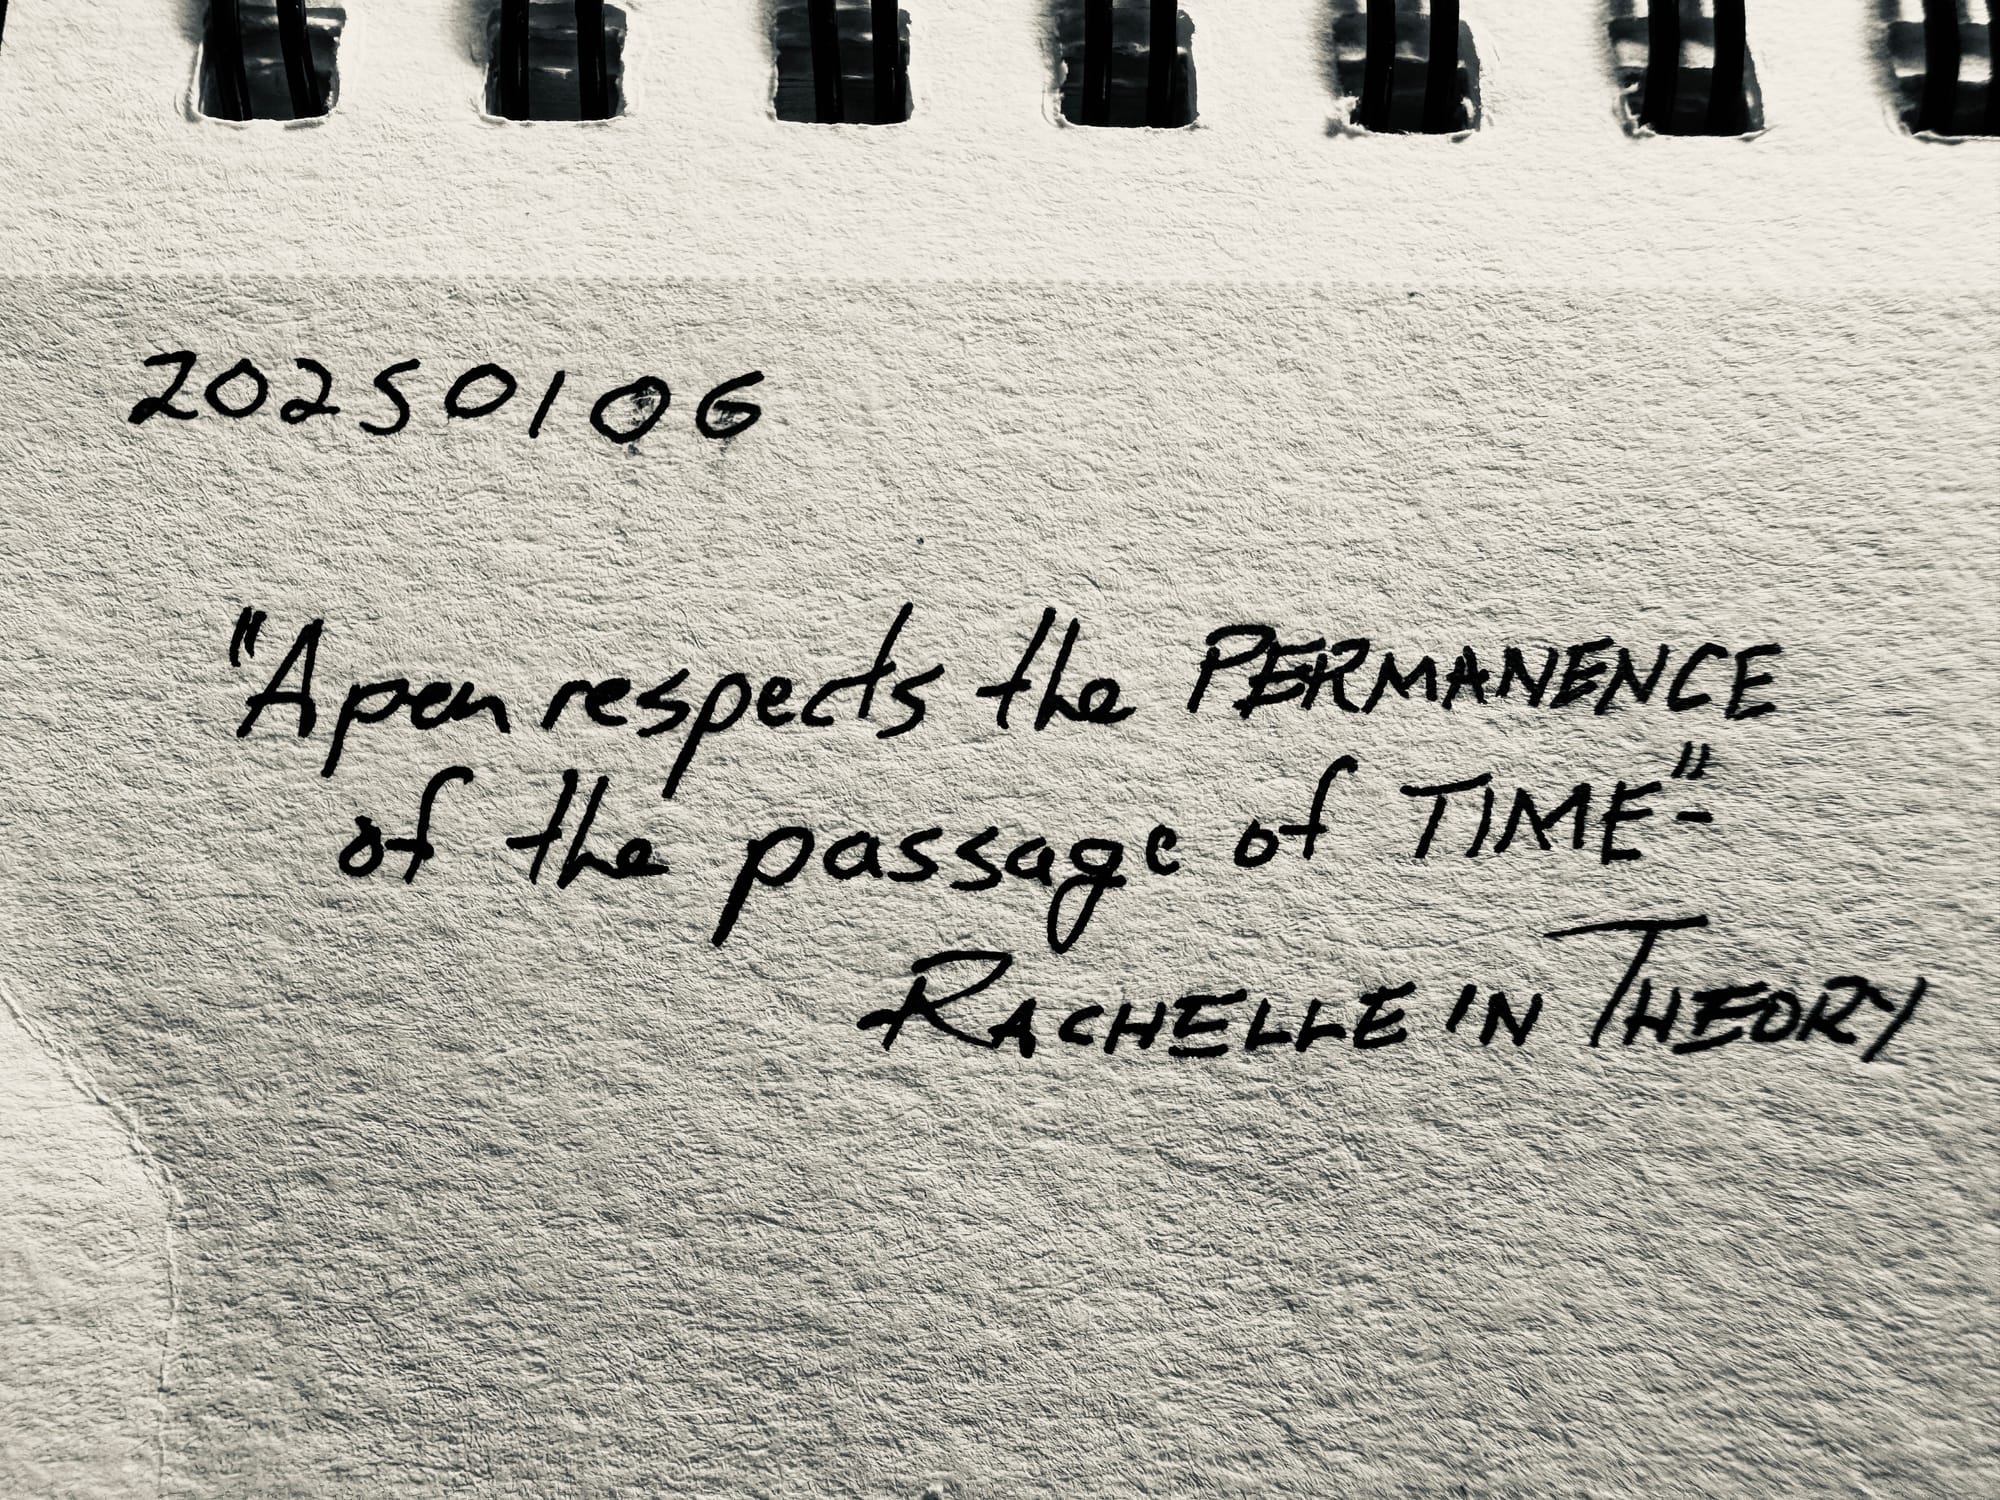 20250106
"A pen respects the PERMANENCE
of the passage of TIME"-
RACHELLE IN THEORY